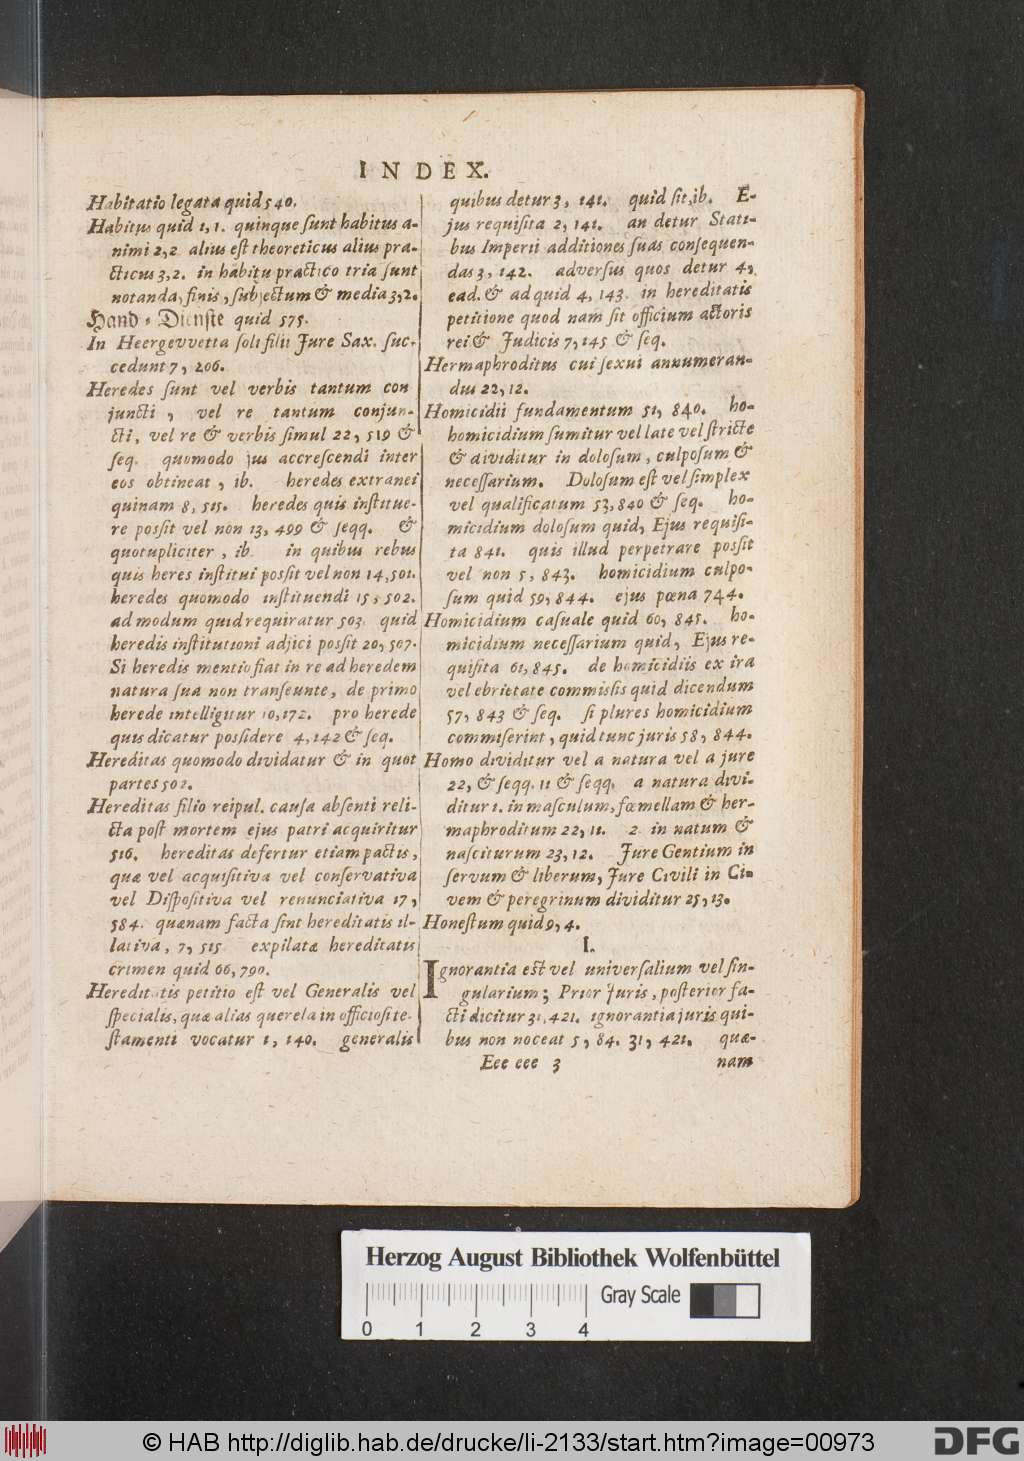 INDEX.
Habitatio legata quid 540.
Habitus quid 1, 1. quinque ſunt habitus a-
nimi 2, 2 alius eſt theoreticus alius pra-
cticus 3, 2. in habitu practico tria ſunt
notanda, finis, ſubjectum & media 3, 2.
Hand-Dienſte quid 575.
In Heergevvetta ſoli filii Jure Sax. ſuc-
cedunt 7, 206.
Heredes ſunt vel verbis tantum con
juncti, vel re tantum conjun-
cti, vel re & verbis ſimul 22, 519 &
ſeq. quomodo jus accreſcendi inter
eos obtineat, ib. heredes extranei
quinam 8, 515. heredes quis inſtitue-
re poſſit vel non 13, 499 & ſeqq. &
quotupliciter, ib. in quibus rebus
quis heres inſtitui poſſit vel non 14, 501.
heredes quomodo inſtituendi 15, 502.
ad modum quid requiratur 503. quid
heredis inſtitutioni adjici poſſit 20, 507.
Si heredis mentio fiat in re ad heredem
natura ſua non tranſeunte, de primo
herede intelligitur 10, 172. pro herede
quis dicatur poſſidere 4, 142 & ſeq.
Hereditas quomodo dividatur & in quot
partes 502.
Hereditas filio reipul. cauſa abſenti reli-
cta poſt mortem ejus patri acquiritur
516. hereditas defertur etiam pactis,
quæ vel acquiſitiva vel conſervativa
vel Diſpoſitiva vel renunciativa 17,
584. quænam facta ſint hereditatis il-
lativa, 7, 515 expilatæ hereditatis
crimen quid 66, 790.
Hereditatis petitio eſt vel Generalis vel
ſpecialis, quæ alias querela in officioſi te-
ſtamenti vocatur 1, 140. generalis
quibus detur 3, 141. quid ſit, ib. E-
jus requiſita 2, 141. an detur Stati-
bus Imperii additiones ſuas conſequen-
das 3, 142. adverſus quos detur 4,
ead. & ad quid 4, 143. in hereditatis
petitione quod nam ſit officium actoris
rei & Judicis 7, 145 & ſeq.
Hermaphroditus cui ſexui annumeran-
dus 22, 12.
Homicidii fundamentum 51, 840. ho-
homicidium ſumitur vel late vel ſtricte
& dividitur in doloſum, culpoſum &
neceſſarium. Doloſum eſt vel ſimplex
vel qualificatum 53, 840 & ſeq. ho-
micidium doloſum quid, Ejus requiſi-
ta 841. quis illud perpetrare poſſit
vel non 5, 843. homicidium culpo-
ſum quid 59, 844. ejus pœna 744.
Homicidium caſuale quid 60, 845. ho-
micidium neceſſarium quid, Ejus re-
quiſita 61, 845. de homicidiis ex ira
vel ebrietate commiſſis quid dicendum
57, 843 & ſeq. ſi plures homicidium
commiſerint, quid tunc juris 58, 844.
Homo dividitur vel a natura vel a jure
22, & ſeqq. 11 & ſeqq. a natura divi-
ditur 1. in maſculum, fœmellam & her-
maphroditum 22, 11. 2. in natum &
naſciturum 23, 12. Jure Gentium in
ſervum & liberum, Jure Civili in Ci-
vem & peregrinum dividitur 25, 13.
Honeſtum quid 9, 4.
I.
Ignorantia eſt vel univerſalium vel ſin-
gularium; Prior Juris, poſterior fa-
cti dicitur 31, 421. ignorantia juris qui-
bus non noceat 5, 84. 31, 421. quæ-
Eee eee 3 nam
Herzog August Bibliothek Wolfenbüttel
Gray Scale
0 1 2 3 4
© HAB http://diglib.hab.de/drucke/li-2133/start.htm?image=00973
DFG